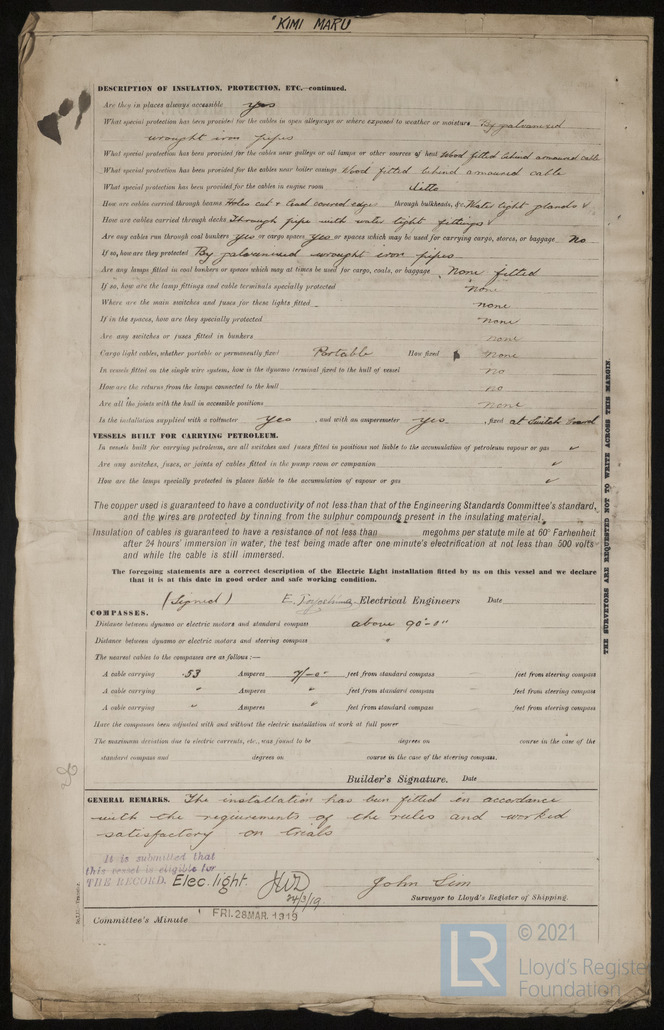 "KIMI MARU"
DESCRIPTION OF INSULATION, PROTECTION, ETC.—continued.
Are they in places always accessible yes
What special protection has been provided for the cables in open alleyways or where exposed to weather or moisture By galvanized
wrought iron pipes
What special protection has been provided for the cables near galleys or oil lamps or other sources of heat Wood fitted behind armoured cable
What special protection has been provided for the cables near boiler casings Wood fitted behind armoured cable
What special protection has been provided for the cables in engine room ditto
How are cables carried through beams Holes cut & lead covered edge through bulkheads, &c. Water tight glands
How are cables carried through decks Through pipe with water tight fittings
Are any cables run through coal bunkers yes or cargo spaces yes or spaces which may be used for carrying cargo, stores, or baggage No
If so, how are they protected By galvanized wrought iron pipes
Are any lamps fitted in coal bunkers or spaces which may at times be used for cargo, coals, or baggage None fitted
If so, how are the lamp fittings and cable terminals specially protected none
Where are the main switches and fuses for these lights fitted none
If in the spaces, how are they specially protected none
Are any switches or fuses fitted in bunkers none
Cargo light cables, whether portable or permanently fixed Portable How fixed None
In vessels fitted on the single wire system, how is the dynamo terminal fixed to the hull of vessel no
How are the returns from the lamps connected to the hull no
Are all the joints with the hull in accessible positions none
Is the installation supplied with a voltmeter yes , and with an amperemeter yes , fixed at Switch board
VESSELS BUILT FOR CARRYING PETROLEUM.
In vessels built for carrying petroleum, are all switches and fuses fitted in positions not liable to the accumulation of petroleum vapour or gas
Are any switches, fuses, or joints of cables fitted in the pump room or companion
How are the lamps specially protected in places liable to the accumulation of vapour or gas
The copper used is guaranteed to have a conductivity of not less than that of the Engineering Standards Committee's standard,
and the wires are protected by tinning from the sulphur compounds present in the insulating material.
Insulation of cables is guaranteed to have a resistance of not less than megohms per statute mile at 60° Farhenheit
after 24 hours' immersion in water, the test being made after one minute's electrification at not less than 500 volts
and while the cable is still immersed.
The foregoing statements are a correct description of the Electric Light installation fitted by us on this vessel and we declare
that it is at this date in good order and safe working condition.
(Signed) E. Electrical Engineers Date
COMPASSES.
Distance between dynamo or electric motors and standard compass above 90'-0"
Distance between dynamo or electric motors and steering compass "
The nearest cables to the compasses are as follows:—
A cable carrying .53 Amperes 7'-0" feet from standard compass feet from steering compass
A cable carrying " Amperes " feet from standard compass feet from steering compass
A cable carrying " Amperes " feet from standard compass feet from steering compass
Have the compasses been adjusted with and without the electric installation at work at full power
The maximum deviation due to electric currents, etc., was found to be degrees on course in the case of the
standard compass and degrees on course in the case of the steering compass.
Builder's Signature. Date
GENERAL REMARKS. The installation has been fitted in accordance
with the requirements of the rules and worked
satisfactory on trials
It is submitted that
this vessel is eligible for
THE RECORD. Elec. light. JWD
24/3/19
John Sim
Surveyor to Lloyd's Register of Shipping.
Committee's Minute FRI. 28 MAR. 1919
THE SURVEYORS ARE REQUESTED NOT TO WRITE ACROSS THIS MARGIN.
LR
© 2021
Lloyd's Register
Foundation